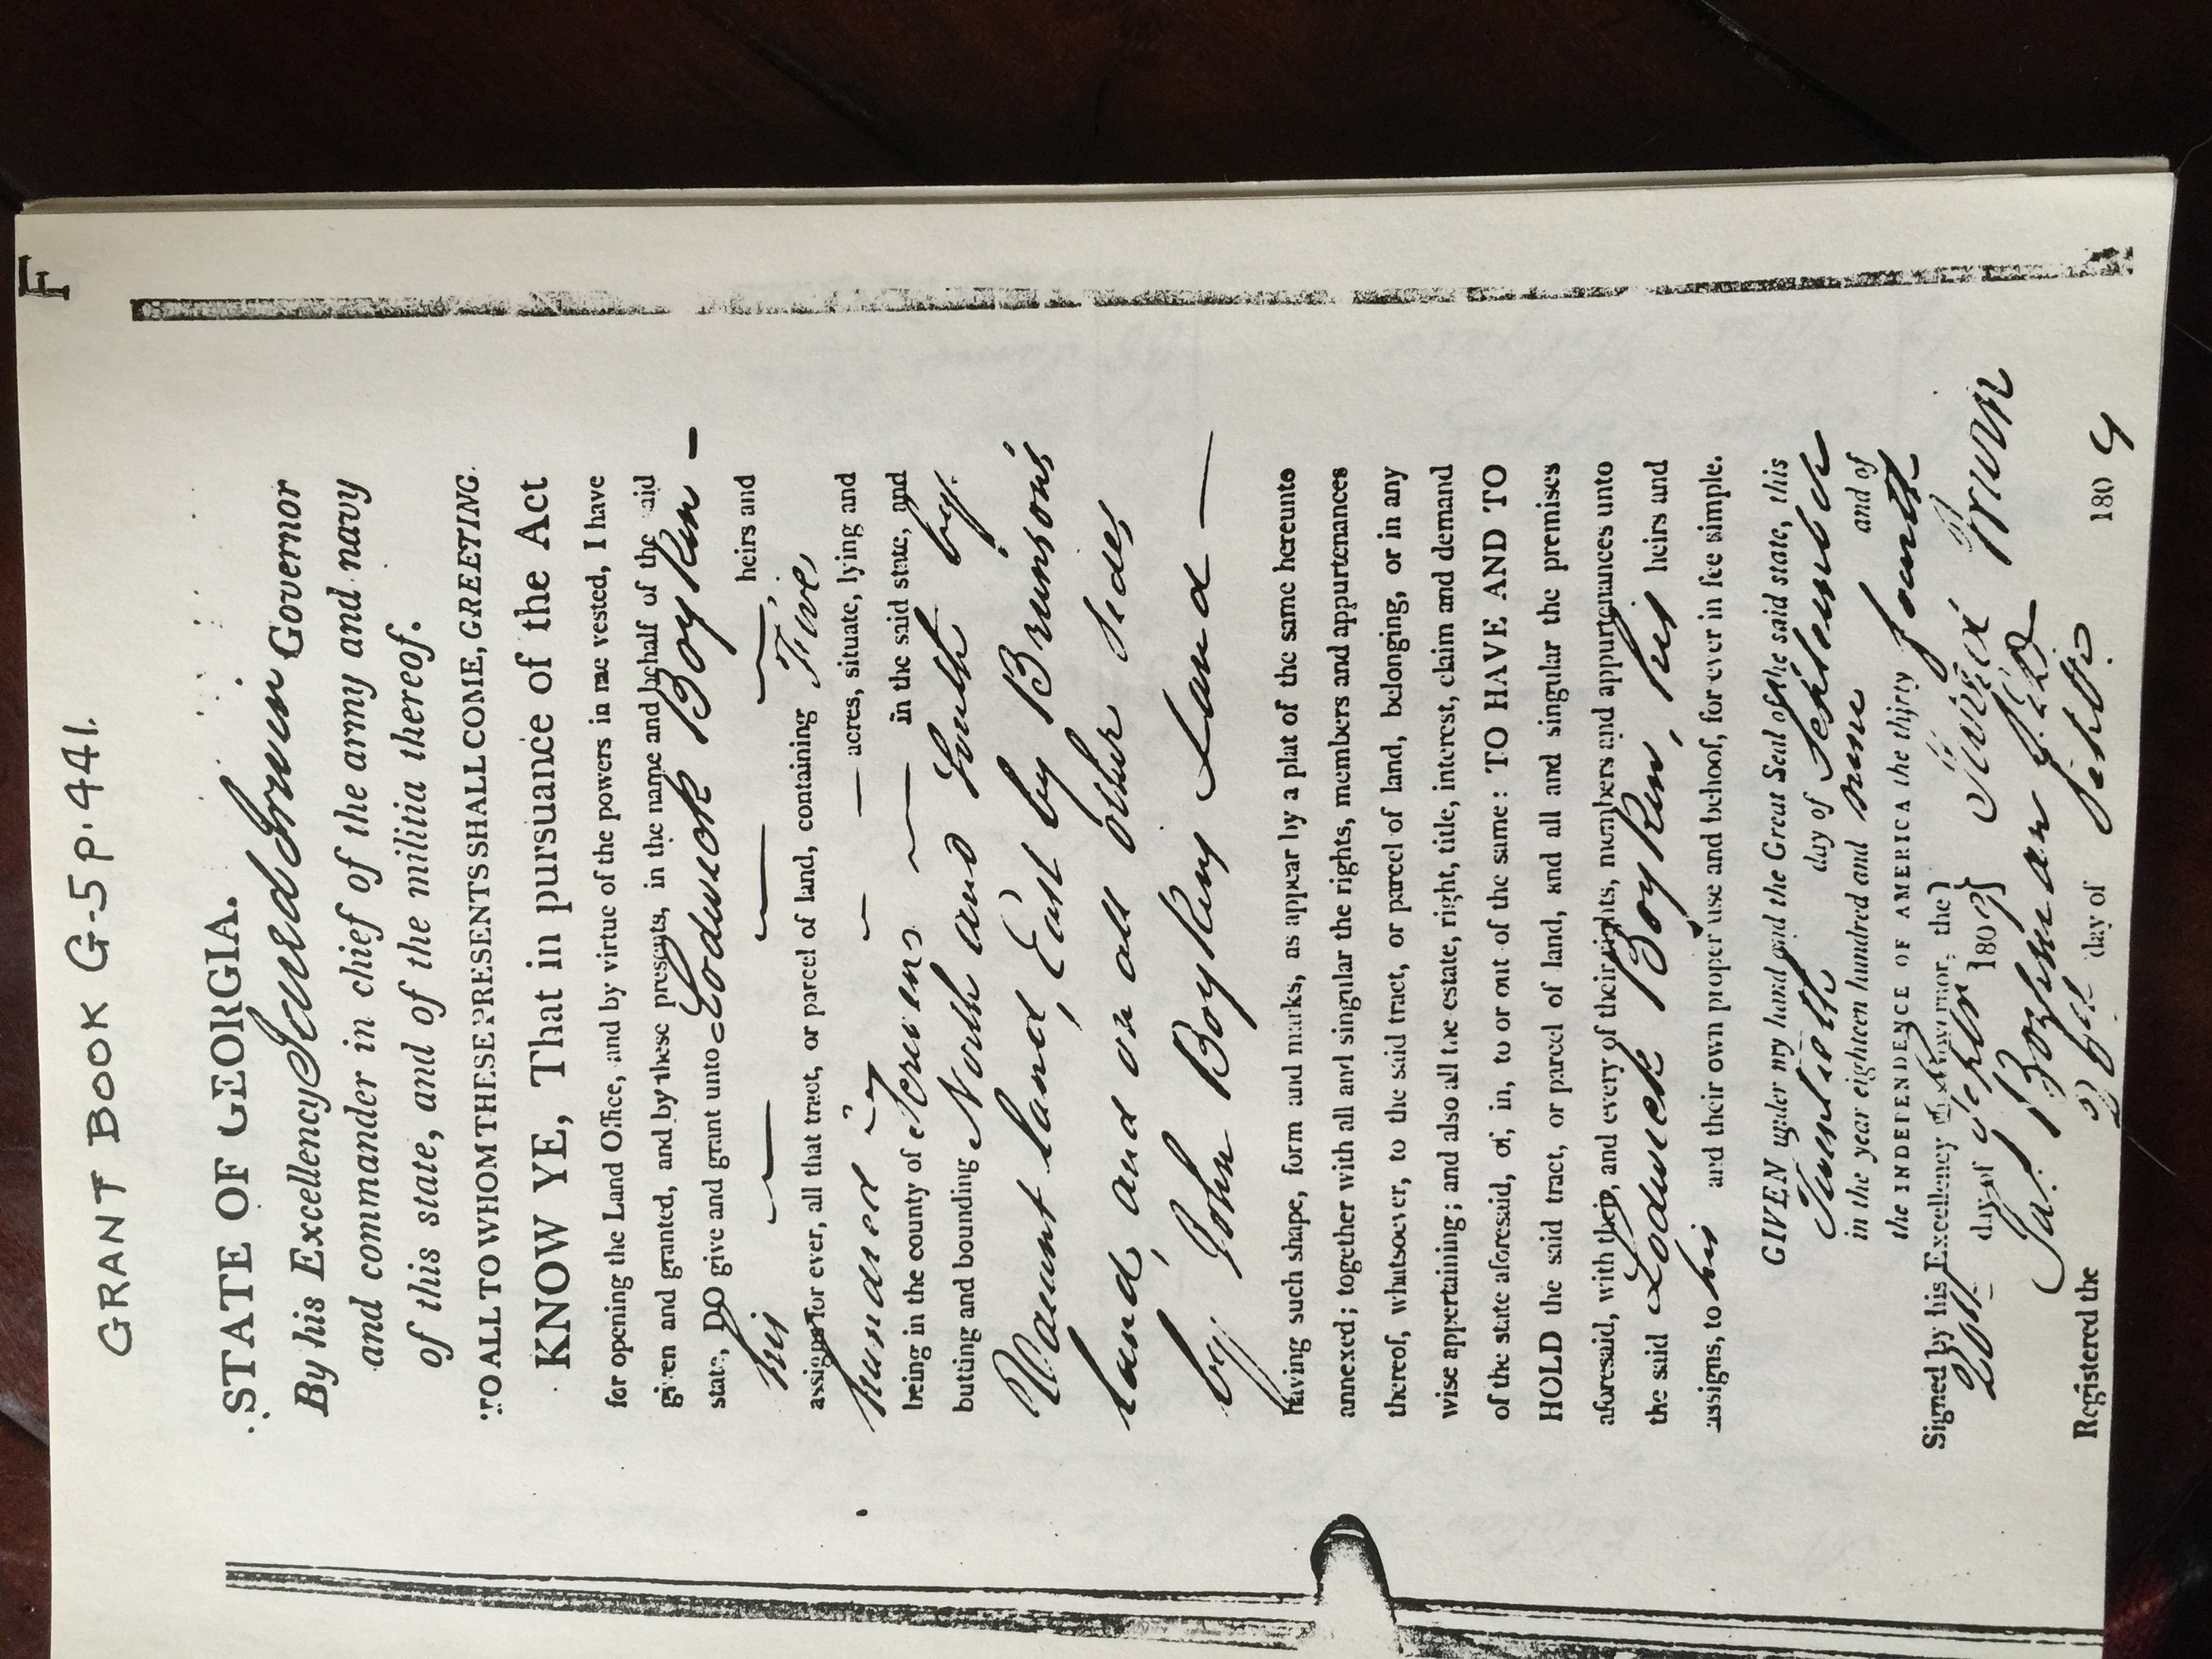 F
GRANT BOOK G-5 P. 441.
STATE OF GEORGIA.
By his Excellency Jared Irwin Governor
and commander in chief of the army and navy
of this state, and of the militia thereof.
TO ALL TO WHOM THESE PRESENTS SHALL COME, GREETING.
KNOW YE, That in pursuance of the Act
for opening the Land Office, and by virtue of the powers in me vested, I have
given and granted, and by these presents, in the name and behalf of the said
state, DO give and grant unto Lodwick Boykin —
his — — — heirs and
assigns for ever, all that tract, or parcel of land, containing Five
hundred — acres, situate, lying and
being in the county of Scrivens — in the said state, and
butting and bounding North and South by
Vacant land, East by Brunson's
land, and on all other sides
by John Boykins Land —
having such shape, form and marks, as appear by a plat of the same hereunto
annexed; together with all and singular the rights, members and appurtenances
thereof, whatsoever, to the said tract, or parcel of land, belonging, or in any
wise appertaining; and also all the estate, right, title, interest, claim and demand
of the state aforesaid, of, in, to or out of the same: TO HAVE AND TO
HOLD the said tract, or parcel of land, and all and singular the premises
aforesaid, with their, and every of their rights, members and appurtenances unto
the said Lodwick Boykin, his heirs and
assigns, to his and their own proper use and behoof, for ever in fee simple.
GIVEN under my hand and the Great Seal of the said state, this
Twentieth day of September
in the year eighteen hundred and nine and of
the INDEPENDENCE OF AMERICA the thirty fourth
Signed by his Excellency the Governor, the }
20th day of Septr 1809 } Jared Irwin
Jas. Bozeman
Registered the day of Septr. 1809